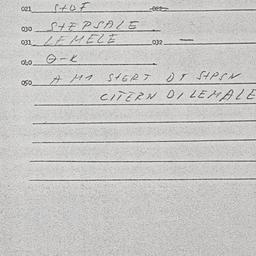 021 STOF
030 STEPSALE
031 LEMELE 032 —
040 O-K
050 A M1 STERT OT STPSN
CITERN DILEMALE